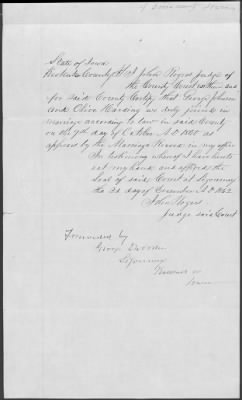 State of Iowa
Keokuk County SS I John Rogers Judge of
the County Court within and
for said County Certify that George Johnson
and Olive Harding are duly joined in
marriage according to law in said County
on the 9th day of October A.D 1860 as
appears by the Marriage Record in my office
In testimony whereof I have hereto
set my hand and affixed the
Seal of said Court at Sigourney
the 3d day of December A.D 1862
John Rogers
Judge said Court
Forwarded by
George
Sigourney
Iowa